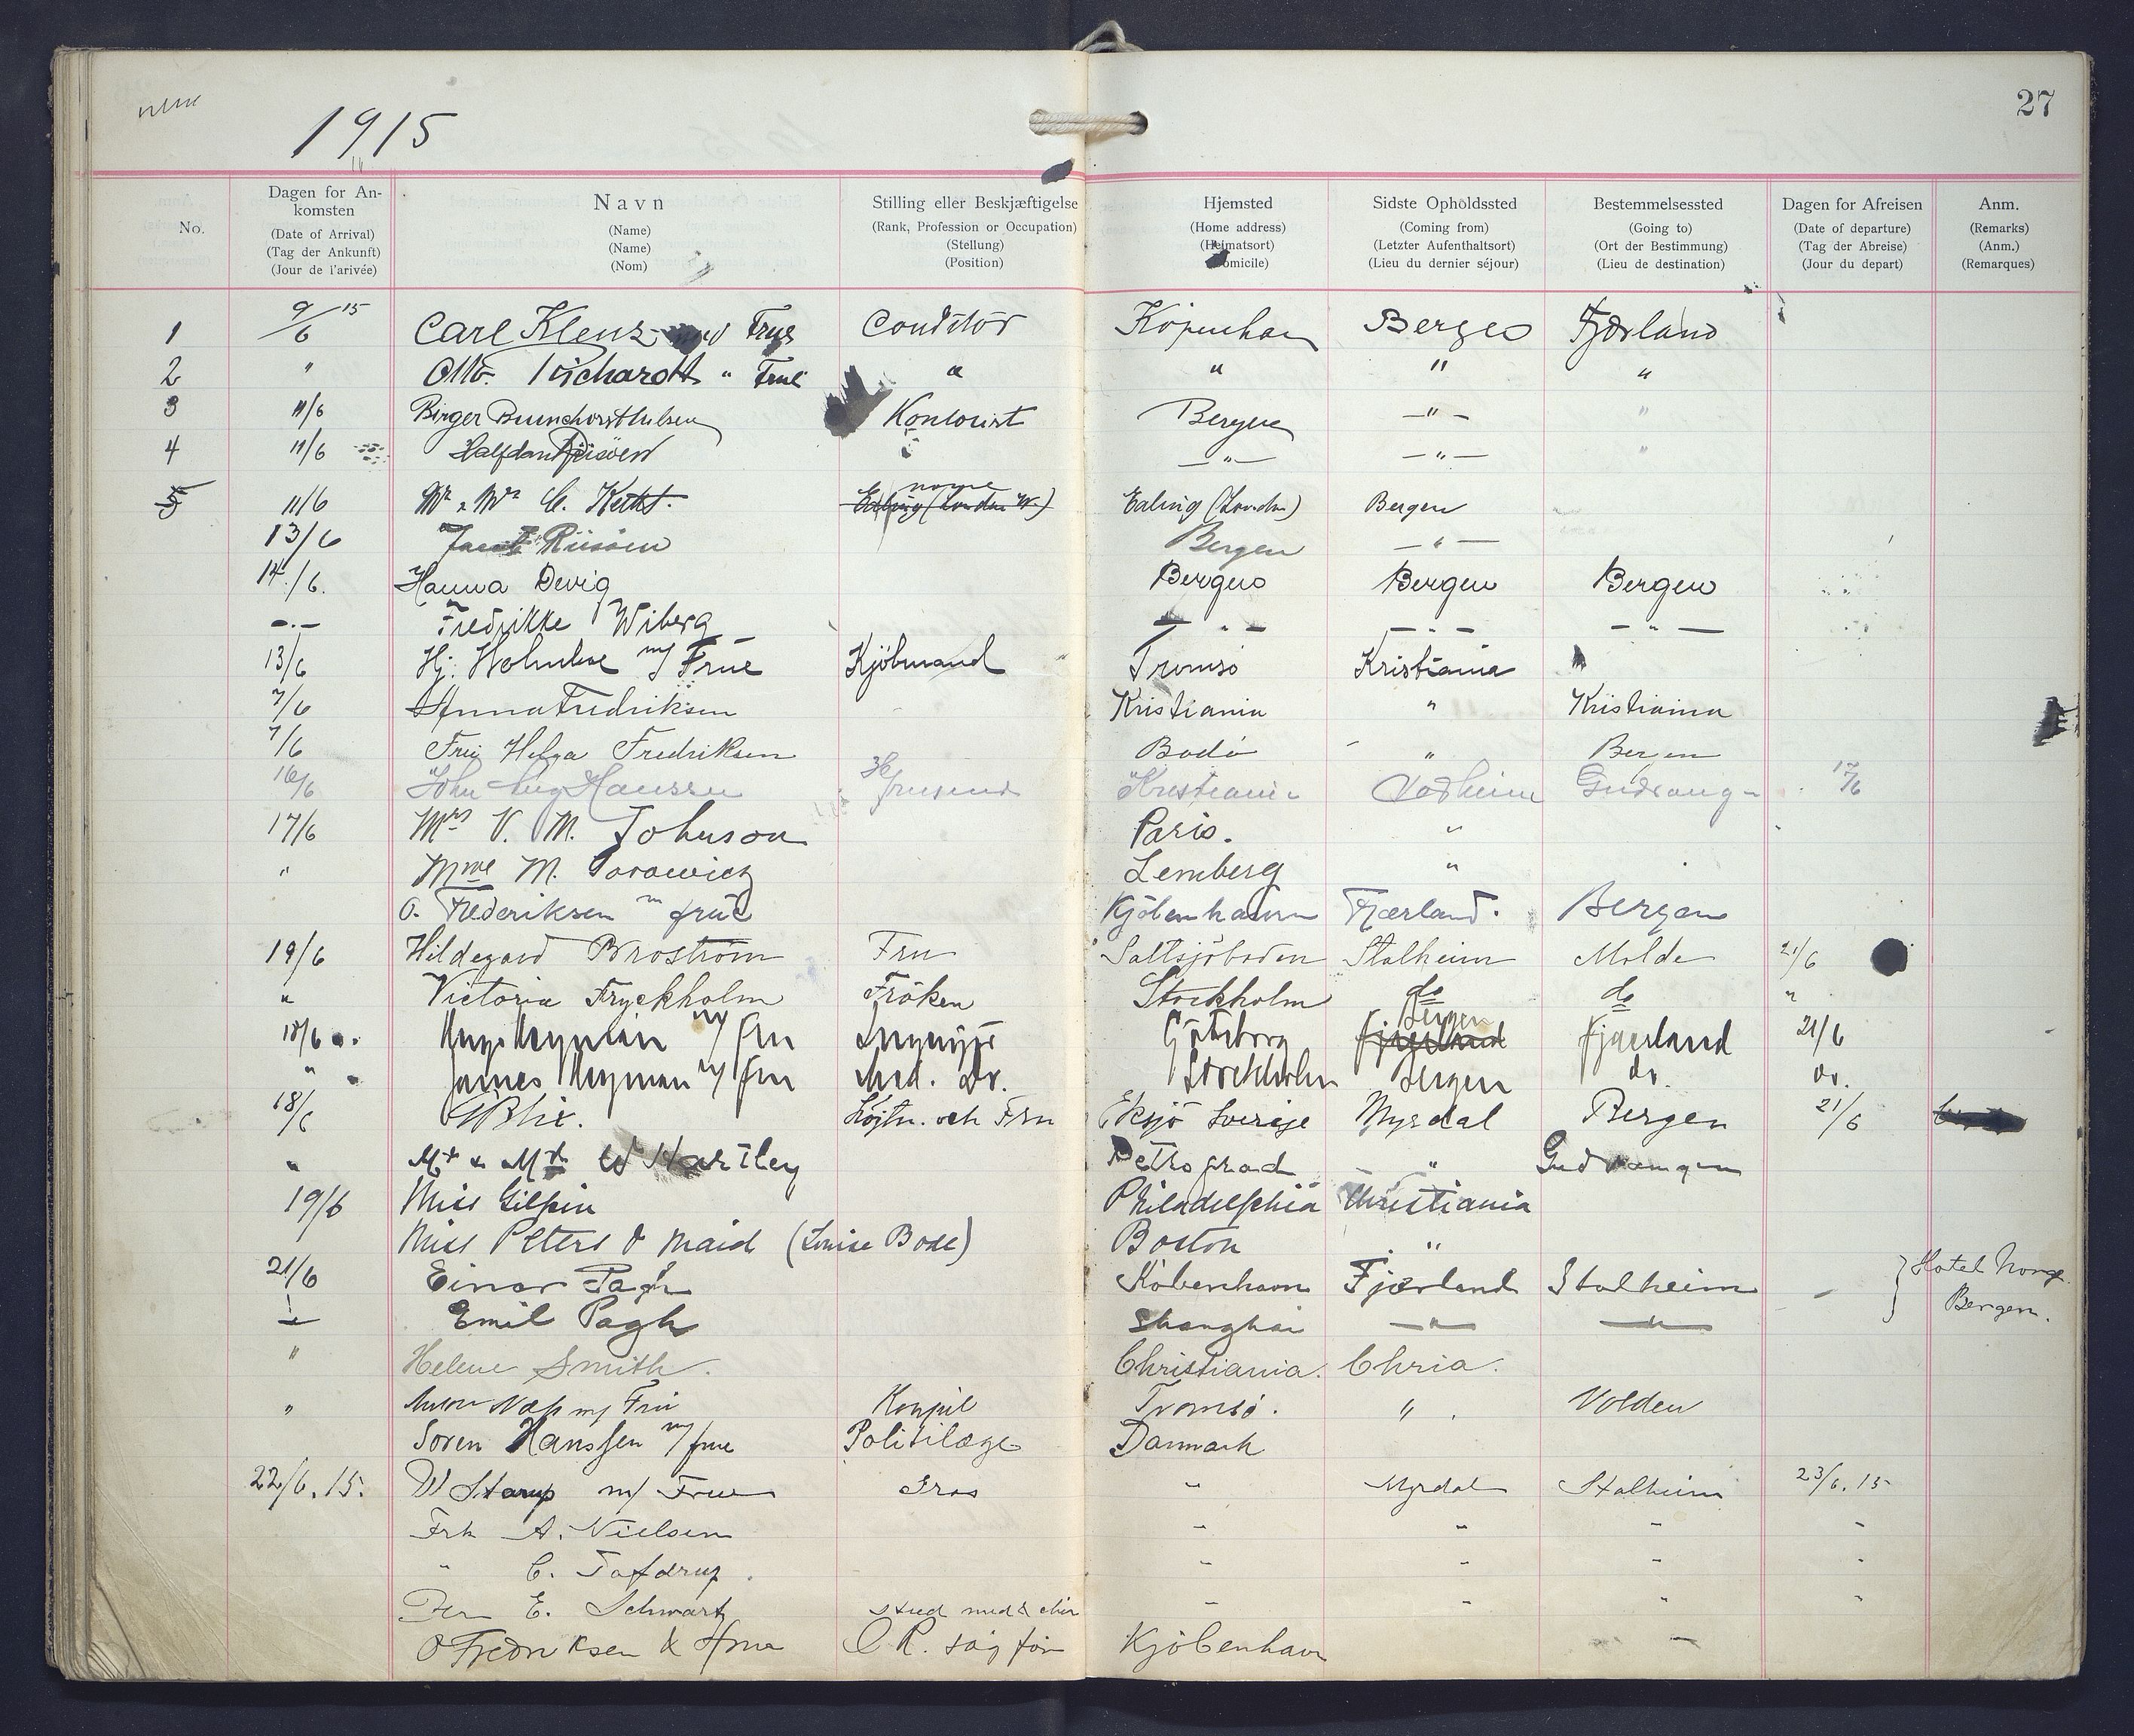 1915
27
No.
Dagen for Ankomsten
(Date of Arrival)
(Tag der Ankunft)
(Jour de l'arivée)
Navn
(Name)
(Name)
(Nom)
Stilling eller Beskjæftigelse
(Rank, Profession or Occupation)
(Stellung)
(Position)
Hjemsted
(Home address)
(Heimatsort)
(Domicile)
Sidste Opholdssted
(Coming from)
(Letzter Aufenthaltsort)
(Lieu du dernier séjour)
Bestemmelsessted
(Going to)
(Ort der Bestimmung)
(Lieu de destination)
Dagen for Afreisen
(Date of departure)
(Tag der Abreise)
(Jour du depart)
Anm.
(Remarks)
(Anm.)
(Remarques)
1 9/6 15 Carl Klenz Frue Conditor Köpenhavn Bergen Fjærland
2 " Otto " Frue " " " "
3 11/6 Birger Kontorist Bergen —"— "
4 11/6 Halfdan —"— —"— "
5 11/6 Mr & Mrs C. none Ealing (London W.) Ealing (London) Bergen
13/6 Riisöen Bergen —"—
14/6. Hanna Devig Bergen Bergen Bergen
—"— Fredrikke Wiberg —"— —"— —"—
13/6 Hj. Holmboe m/ Frue Kjöbmand Tromsö Kristiania
7/6 Anna Fredriksen Kristiania " Kristiania
7/6 Fru Helga Fredriksen Bodö " Bergen
16/6 John Aug Hanssen Kristiania Vadheim Gudvangen 17/6
17/6 Mrs V. M. Johnson Paris. "
" Mme M. Lemberg "
O. Frederiksen m frue Kjöbenhavn Fjærland. Bergen
19/6 Hildegard Broström Fru Saltsjöbaden Stalheim Molde 21/6
" Victoria Fryckholm Fröken Stockholm do do "
18/6 Hugo Heyman m/ fru Ingenjör Göteborg Bergen fjaerland 21/6
" James Heyman m/ fru Med. Dr. Stockholm Bergen do. do.
18/6 Blix. Löjtn. och Fru Eksjö Sverige Myrdal Bergen 21/6
" Mr & Mrs W Hartley Petrograd " Gudvangen
19/6 Miss Gilpin Philadelphia Christiania
Miss Peters & Maid (Louise Bode) Boston "
21/6 Einar Pagh Köbenhavn Fjærland Stalheim } Hotel Norge
Emil Pagh Shanghai —"— —"— Bergen.
" Helene Smith. Christiania. Chria.
" m/ Fru Tromsö. " Volden
Sören Hanssen m/ frue Danmark
22/6.15. Starup m/ Frue " Myrdal Stalheim 23/6.15
Frk A. Nielsen " " " "
" C. Tafdrup. " " " "
E. Schwartz stud med & chir " " " "
O Fredriksen & frue O.R. sagför Kjöbenhavn "